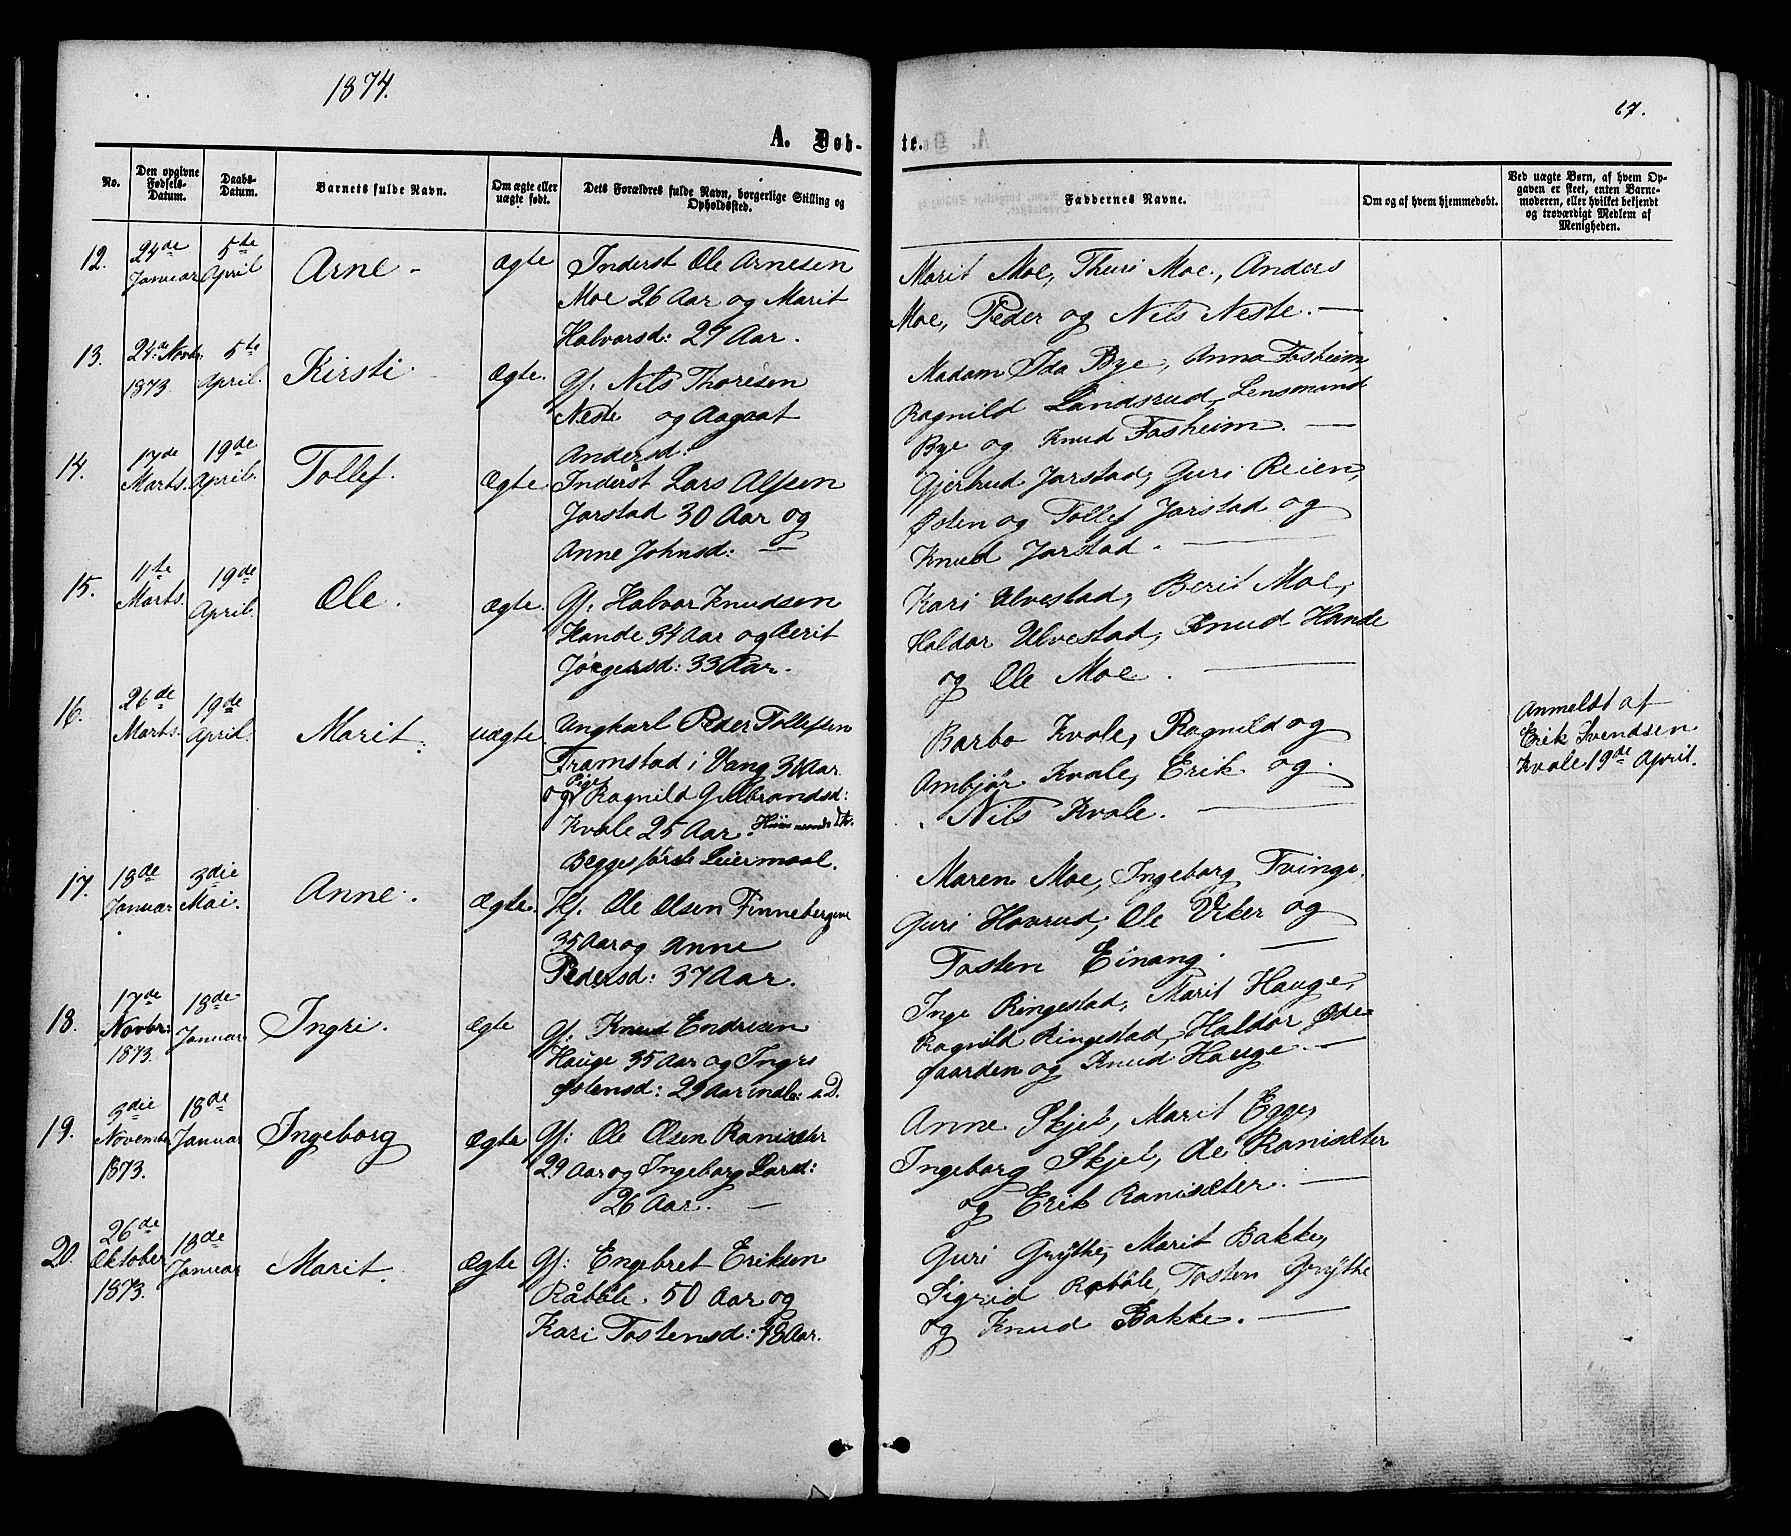 1874.
67.
A. Døb-
te.
No.
Den opgivne Fødsels-Datum.
Daabs-Datum.
Barnets fulde Navn.
Om ægte eller uægte født.
Dets Forældres fulde Navn, borgerlige Stilling og Opholdssted.
Faddernes Navne.
Om og af hvem hjemmedøbt.
Ved uægte Børn, af hvem Op-
gaven er skeet, enten Barne-
moderen, eller hvilket bekjendt
og troværdigt Medlem af
Menigheden.
12.
24de
Januar
5te
April
Arne -
Ægte
Inderst Ole Arnesen
Moe 26 Aar og Marit
Halvorsd: 27 Aar.
Marit Moe, Thuri Moe, Anders
Moe, Peder og Nils Neste. —
13.
24de Novbr.
1873.
5te
April.
Kirsti
Ægte.
Gf. Nils Thoresen
Neste og Aagaat
Andersd:
Madam Ida Bye, Anna Fosheim,
Ragnild Landsrud, Lensmand
Bye og Knud Fosheim. —
14.
17de
Marts.
19de
April.
Tollef.
Ægte
Inderst Lars Alfsen
Jarstad 30 Aar og
Anne Johnsd: —
Gjertrud Jarstad, Guri Reien,
Østen og Tollef Jarstad og
Knud Jarstad. —
15.
11te
Marts.
19de
April.
Ole.
Ægte.
Gf. Halvor Knudsen
Hande 34 Aar og Berit
Jørgensd: 33 Aar.
Kari Ulvestad, Berit Moe,
Haldor Ulvestad, Knud Hande
og Ole Moe. —
16.
26de
Marts.
19de
April.
Marit.
uægte
Ungkarl Peder Tollefsen
Framstad i Vang 30 Aar
og Pige Ragnild Gulbrandsd:
Kvale 25 Aar. Huusmandsdtr.
Begges første Leiermaal.
Barbo Kvale, Ragnild og
Ambjør Kvale, Erik og
Nils Kvale. —
Anmeldt af
Erik Svendsen
Kvale 19de April.
17.
18de
Januar
3die
Mai.
Anne.
Ægte.
Hf. Ole Olsen Finnebergene
35 Aar og Anne
Pedersd: 37 Aar.
Maren Moe, Ingeborg Tvinge,
Guri Hovrud, Ole Viker og
Tosten Einang. —
18.
17de
Novbr:
1873.
18de
Januar
Ingri.
Ægte
Gf. Knud Endresen
Hauge 35 Aar og Ingri
Østensd: 29 Aar
Inge Ringestad, Marit Hauge,
Ragnild Ringestad, Haldor Øde-
gaarden og Knud Hauge. —
19.
3die
Novembr
1873.
18de
Januar
Ingeborg
Ægte
Gf: Ole Olsen Ranisæter
29 Aar og Ingeborg Larsd:
26 Aar. —
Anne Skjel, Marit Egge,
Ingeborg Skjel, Ole Ranisæter
og Erik Ranisæter. —
20.
26de
Oktober
1873.
18de
Januar
Marit.
Ægte
Gf: Engebret Eriksen
Råbøle. 50 Aar og
Kari Tostensd: 48 Aar.
Guri Grythe, Marit Bakke,
Sigrid Rabøle, Tosten Grythe
og Knud Bakke. —